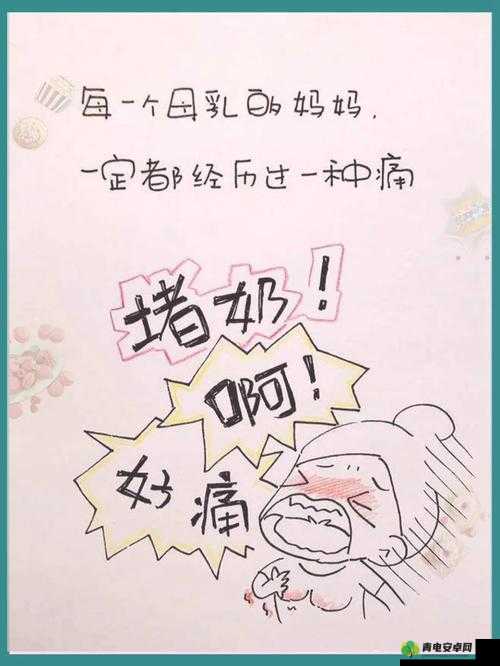 每一个母乳的妈妈,
一定都经历过一种痛
堵奶!
啊!
好痛
青电安卓网